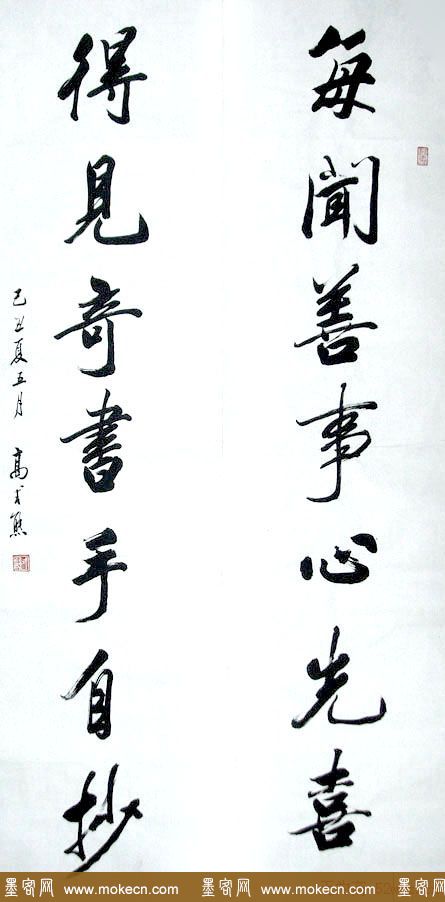 每聞善事心先喜
得見奇書手自抄
己丑夏五月 高式熊
墨客网 www.mokecn.com 墨客网 www.mokecn.com